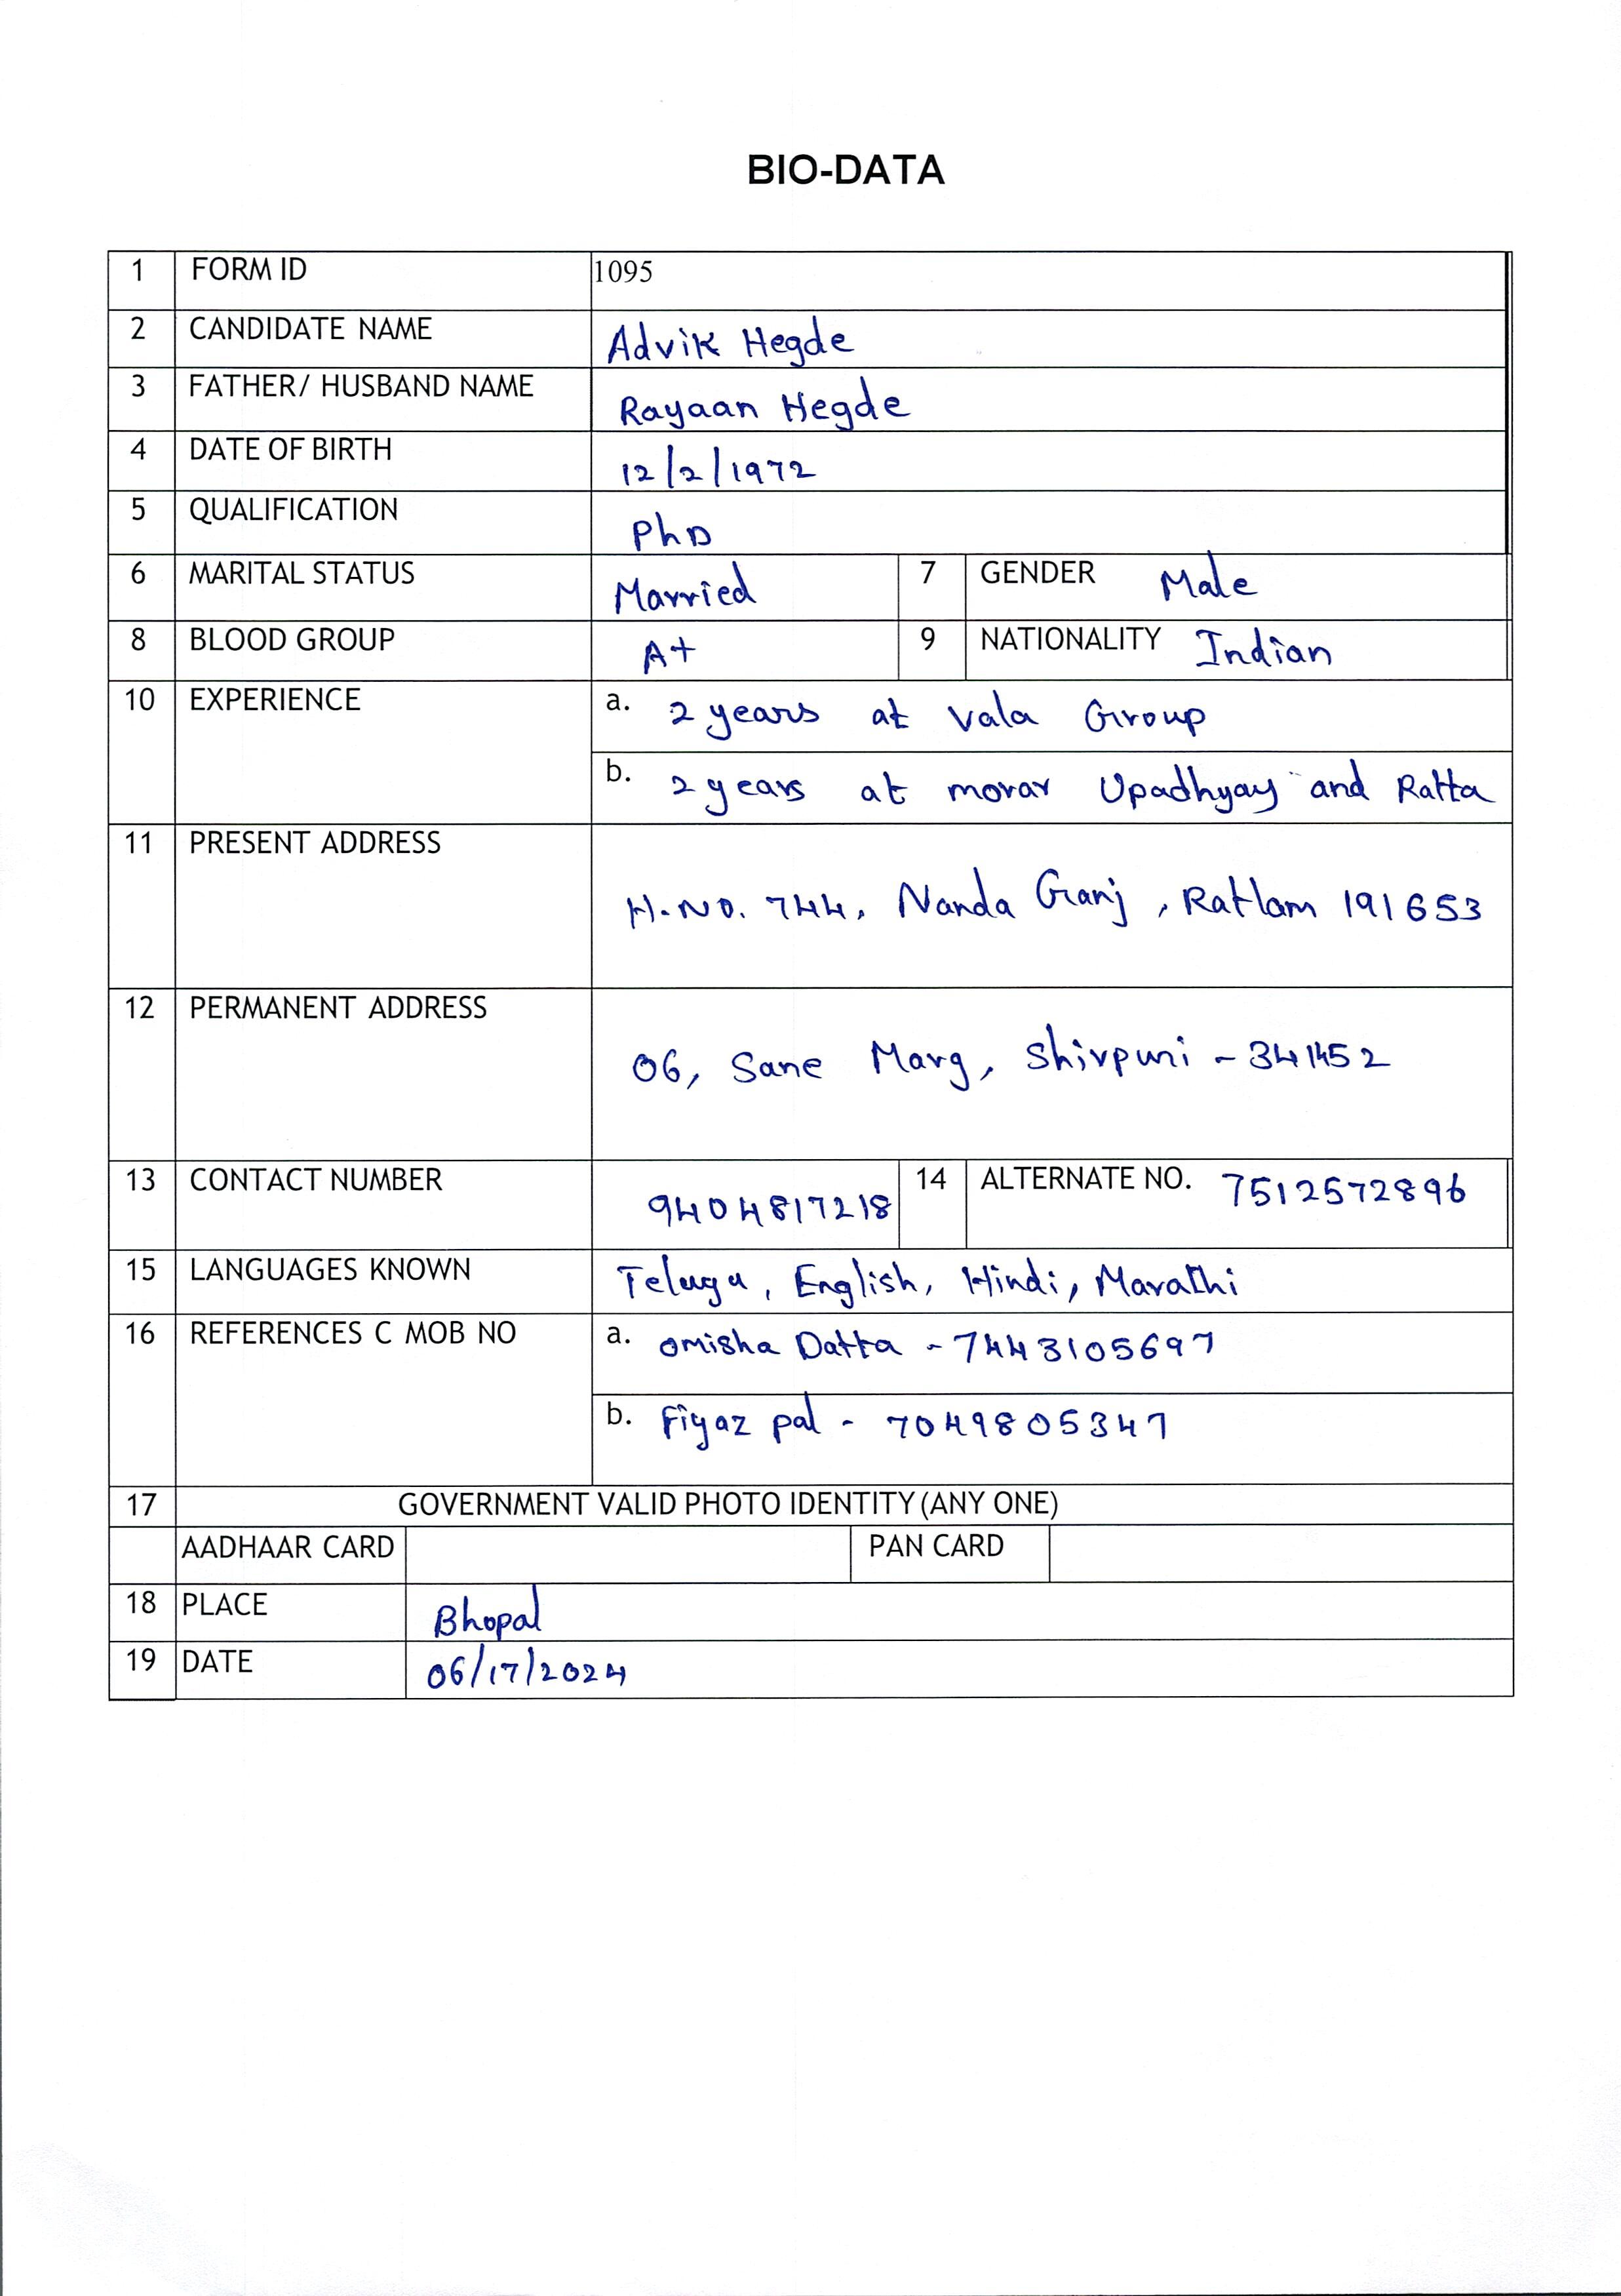 BIO-DATA
1 FORM ID 1095
2 CANDIDATE NAME Advik Hegde
3 FATHER/ HUSBAND NAME Rayaan Hegde
4 DATE OF BIRTH 12/2/1972
5 QUALIFICATION PhD
6 MARITAL STATUS Married 7 GENDER Male
8 BLOOD GROUP A+ 9 NATIONALITY Indian
10 EXPERIENCE a. 2 years at Vala Group
b. 2 years at morar Upadhyay and Ratta
11 PRESENT ADDRESS
H.NO. 744, Nanda Ganj, Ratlam 191653
12 PERMANENT ADDRESS
06, Sane Marg, Shivpuri - 341452
13 CONTACT NUMBER 9404817218 14 ALTERNATE NO. 7512572896
15 LANGUAGES KNOWN Telugu, English, Hindi, Marathi
16 REFERENCES C MOB NO a. Omisha Datta - 7443105697
b. Fiyaz pal - 7049805347
17 GOVERNMENT VALID PHOTO IDENTITY (ANY ONE)
AADHAAR CARD PAN CARD
18 PLACE Bhopal
19 DATE 06/17/2024